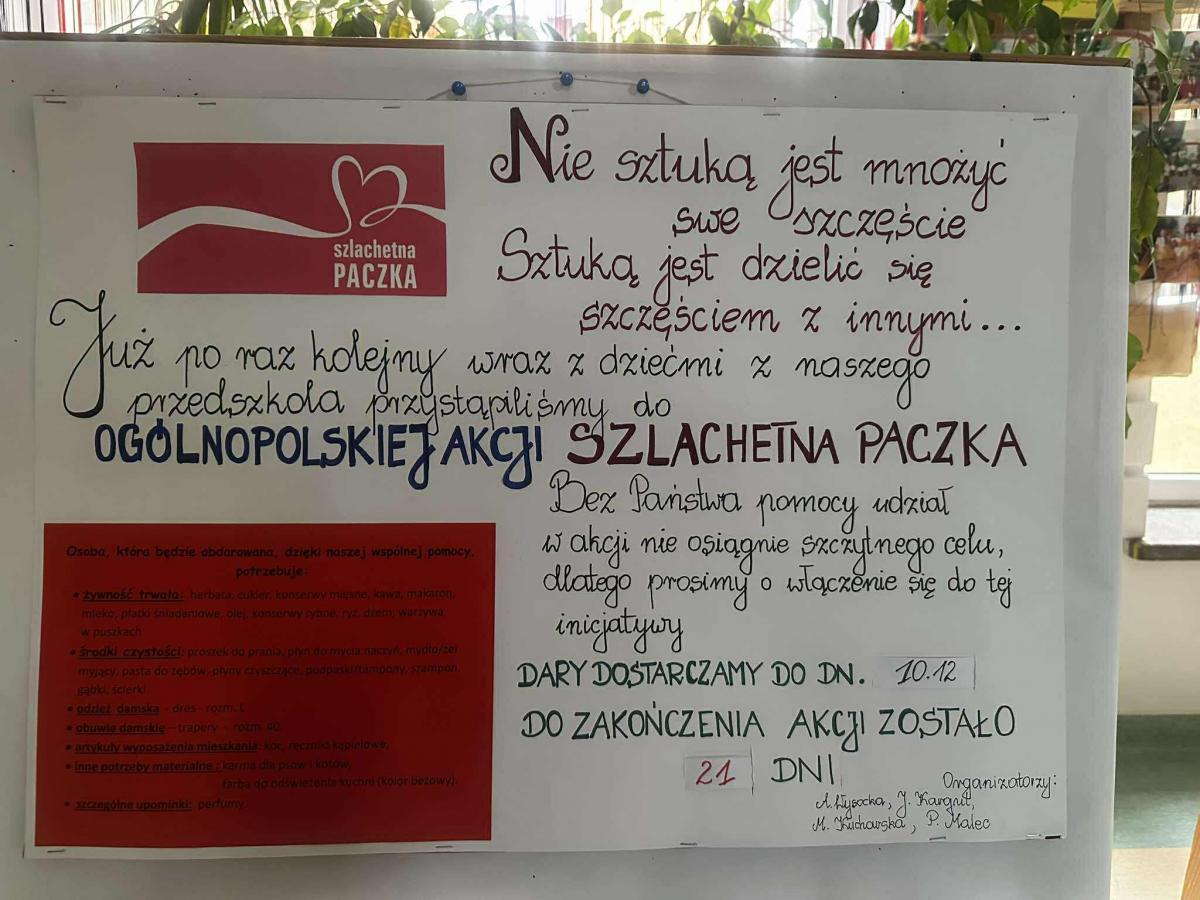 szlachetna
PACZKA
Nie sztuką jest mnożyć
swe szczęście
Sztuką jest dzielić się
szczęściem z innymi...
Już po raz kolejny wraz z dziećmi z naszego
przedszkola przystąpiliśmy do
OGÓLNOPOLSKIEJ AKCJI SZLACHETNA PACZKA
Osoba, która będzie obdarowana, dzięki naszej wspólnej pomocy,
potrzebuje:
• żywność trwała: herbata, cukier, konserwy mięsne, kawa, makaron,
mleko, płatki śniadaniowe, olej, konserwy rybne, ryż, dżem, warzywa
w puszkach
• środki czystości: proszek do prania, płyn do mycia naczyń, mydło/żel
myjący, pasta do zębów, płyny czyszczące, podpaski/tampony, szampon,
gąbki, ścierki
• odzież damska - dres - rozm. L
• obuwie damskie - trapery - rozm. 40
• artykuły wyposażenia mieszkania: koc, ręczniki kąpielowe,
• inne potrzeby materialne: karma dla psów i kotów,
farba do odświeżenia kuchni (kolor beżowy).
• szczególne upominki: perfumy
Bez Państwa pomocy udział
w akcji nie osiągnie szczytnego celu,
dlatego prosimy o włączenie się do tej
inicjatywy
DARY DOSTARCZAMY DO DN. 10.12
DO ZAKOŃCZENIA AKCJI ZOSTAŁO
21 DNI
Organizatorzy:
A. Wysocka, J. Kargul,
M. Kuchowska, P. Malec